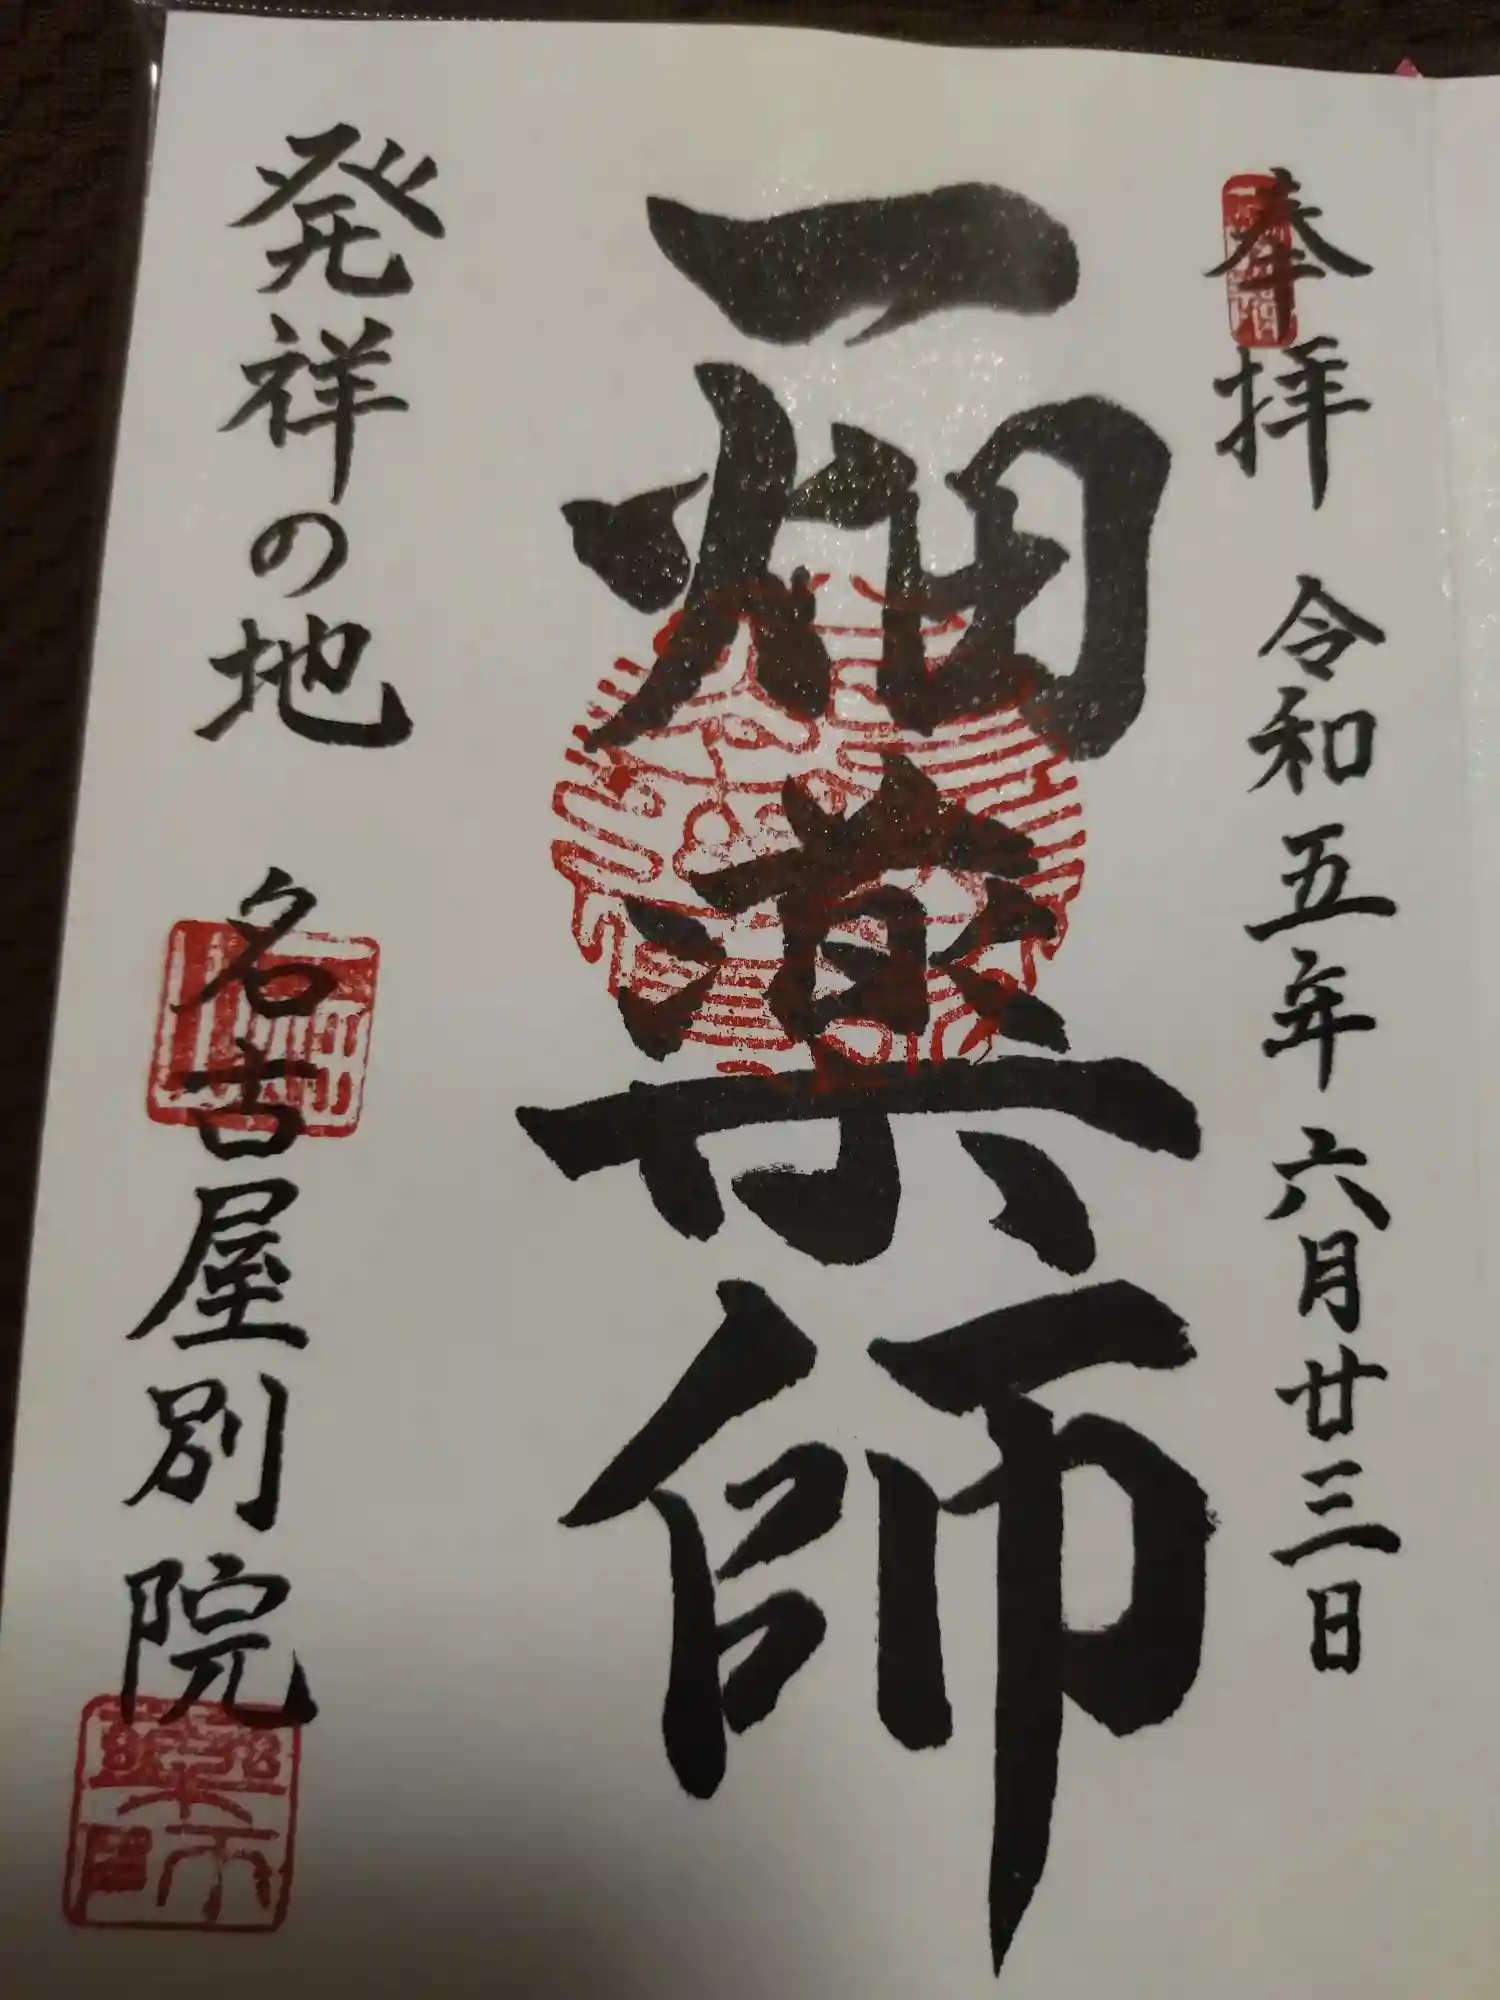 奉拝 令和五年六月廿三日
一畑薬師
発祥の地 名古屋別院
薬師